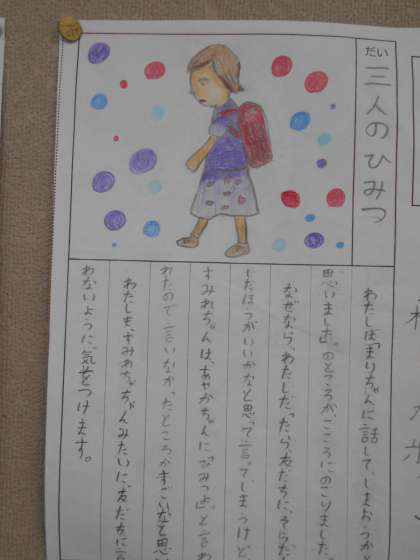 だい
三人のひみつ
わたしは「まりちゃんに話して、しまおうか
思いました。」のところが、こころにのこりました。
なぜなら、わたしだったら友だちに、そうだ
したほうがいいかなと思って言ってしまうけど
すみれちゃんは、あやかちゃんに「ひみつよ」と言わ
れたので言いなかったところがすごいなと思
わたしも、すみれちゃんみたいに、友だちに言
わないように、気をつけます。